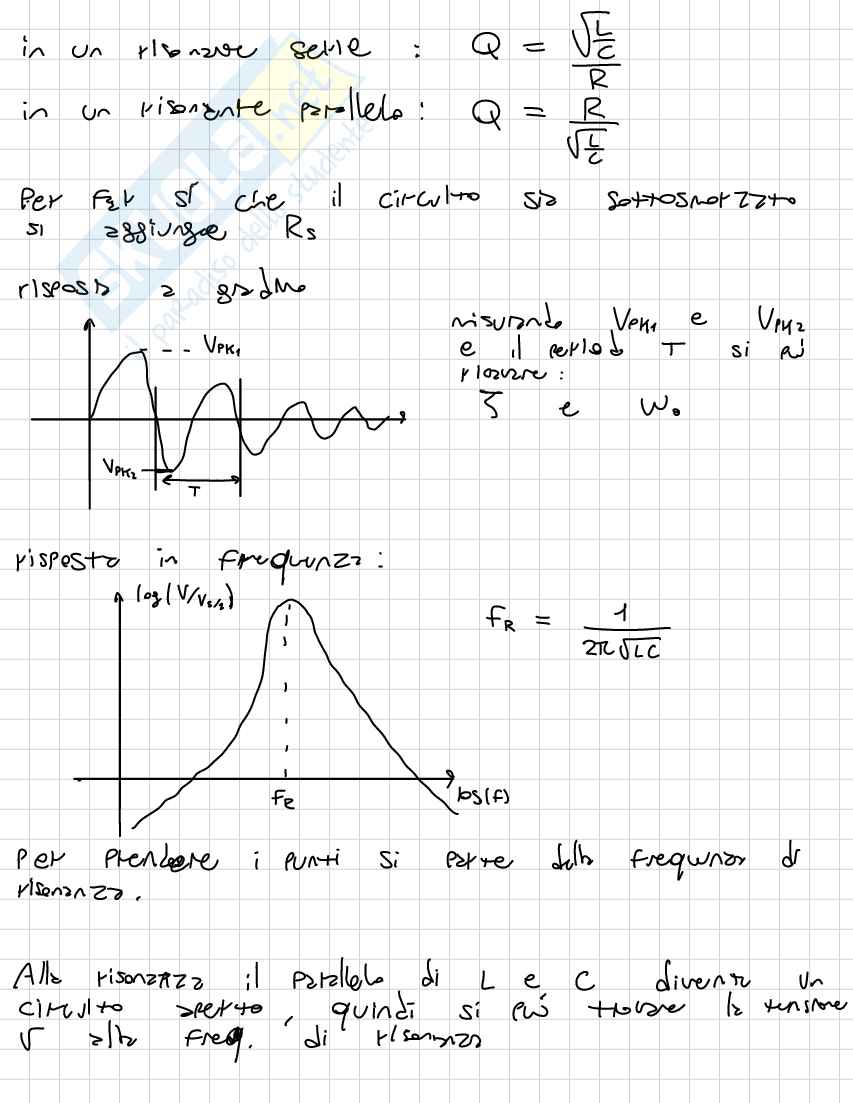 in un risonante serie : Q = √(L/C) / R
in un risonante parallelo : Q = R / √(L/C)
Per far sí che il circuito sia sottosmorzato
si aggiunge Rs
risposta a gradino
misurando VPK1 e VPK2
e il periodo T si può
ricavare :
ζ e ω₀
VPK1
VPK2
T
risposta in frequenza :
log(V/Vs/2)
fR = 1 / 2π√LC
fR
log(f)
Per prendere i punti si parte dalla frequenza di
risonanza.
Alla risonanza il parallelo di L e C diventa un
circuito aperto, quindi si può trovare la tensione
V alla freq. di risonanza
skuola.net
il paradiso dello studente